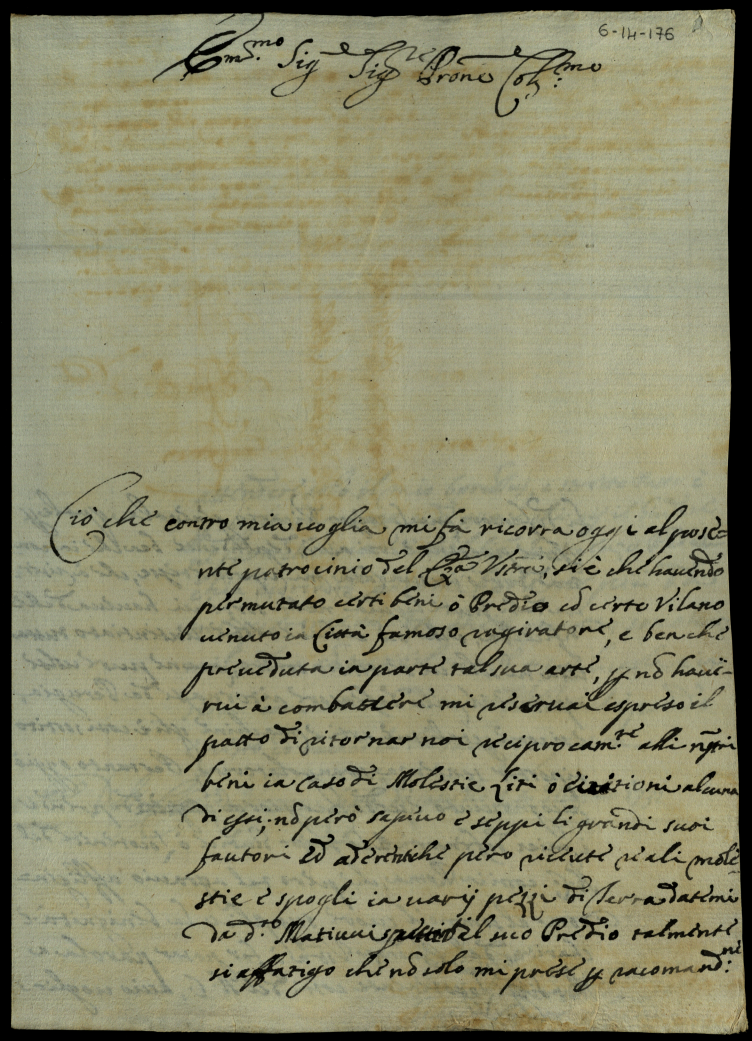 6-14-176
Em.mo Sig.e Sig.re Prone Col.mo
Ciò che contro mia voglia mi fà ricorra oggi al posse-
nte patrocinio del Eza Vstra, si è che havendo
permutato certi beni ò Predio cd certo Vilano
venuto ia Città famoso ragiratore, e ben che
preveduta ia parte tal sua arte, p nō havē-
rui à combattere mi reservai espreso il
patto di ritornar noi reciprocam.te alli nr̃tri
beni ia caso di Molestie Liti ò evitioni alcuna
di essi; nō però sapevo e seppi li grandi suoi
fautori ed aderenti che pero ricevute reali mole-
stie e spogli ia varij pezzi di Terra datemi
da d.to Mativvi il suo Predio talmente
si affatigo che nō solo mi prese p racomand.ne